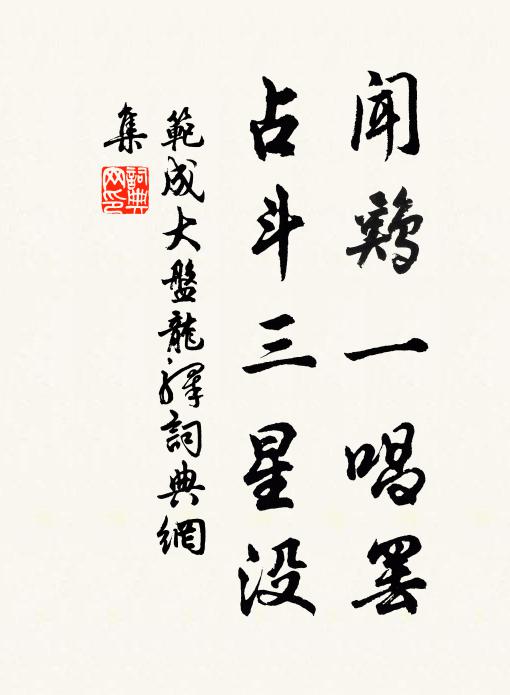 闻鷄一唱罢
占斗三星没
範成大盤龍驛詞典網
集
詞典
网印